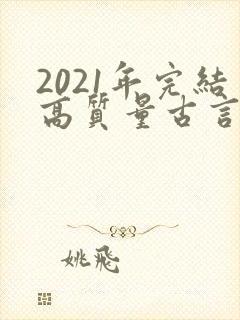 2021年完結
高質量古言
姚飛